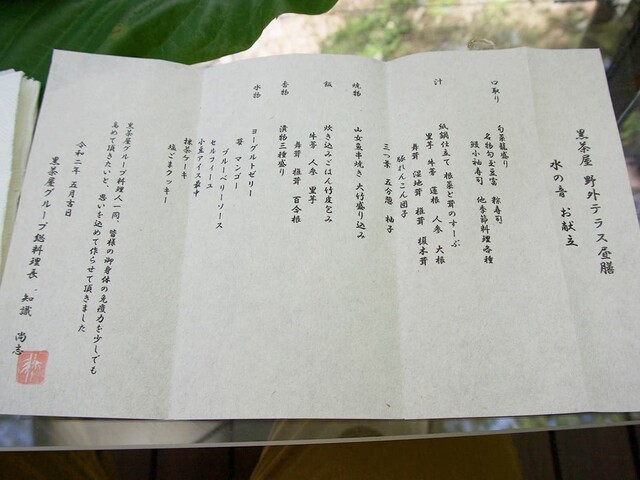 黒茶屋 野外テラス昼膳
水の音 お献立
口取り
旬菜籠盛り
名物勾玉豆富 粽寿司
姫小袖寿司 他季節料理各種
汁
紙鍋仕立て 根菜と茸のすーぷ
里芋 牛蒡 蓮根 人参 大根
舞茸 湿地茸 椎茸 榎木茸
豚れんこん団子
三つ葉 五分葱 柚子
焼物
山女魚串焼き 大竹盛り込み
飯
炊き込みごはん竹皮包み
牛蒡 人参 里芋
舞茸 椎茸 百合根
香物
漬物三種盛り
水物
ヨーグルトゼリー
苺 マンゴー
ブルーベリーソース
セルフィーユ
小豆アイス最中
抹茶ケーキ
塩ごまクッキー
黒茶屋グループ料理人一同、皆様の御身体の免疫力を少しでも
高めて頂きたいと、思いを込めて作らせて頂きました
令和二年 五月吉日
黒茶屋グループ総料理長 知識 尚志